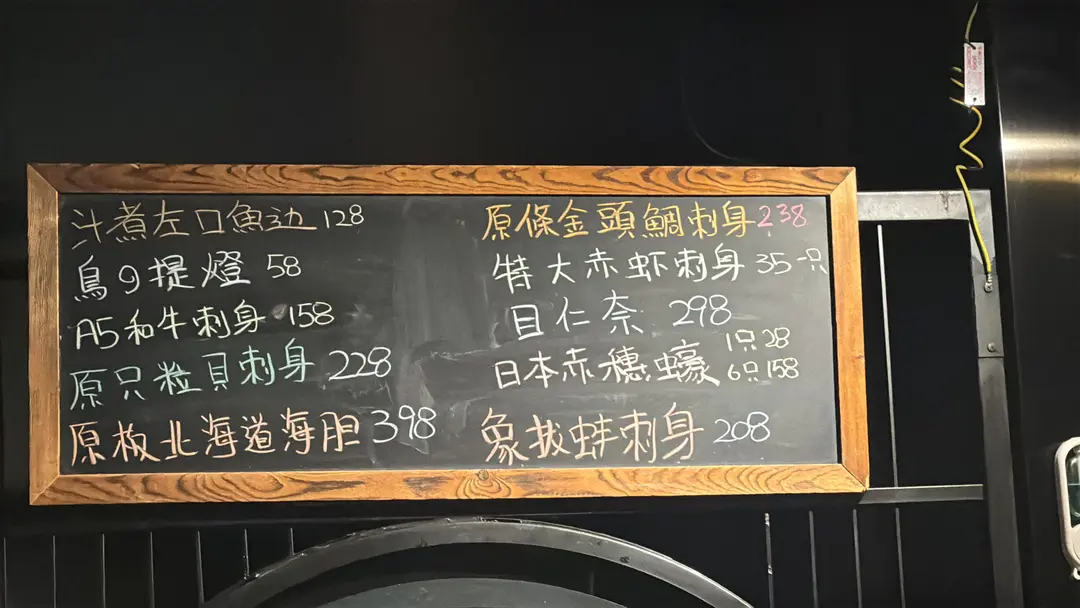 汁煮左口魚边 128
鳥9提燈 58
A5和牛刺身 158
原只粒貝刺身 228
原板北海道海胆 398
原條金頭鯛刺身 238
特大赤虾刺身 35一只
目仁奈 298
日本赤穗蠔 1只28
6只158
象拔蚌刺身 208